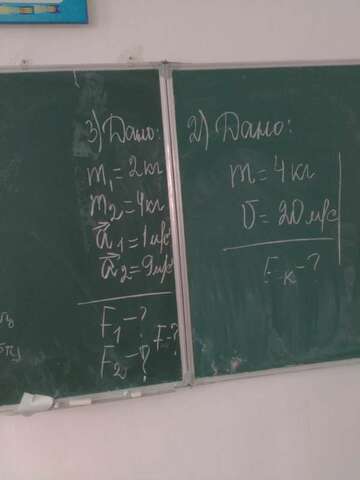 3) Дано:
m₁=2кг
m₂=4кг
a⃗₁=1м/с
a⃗₂=9м/с
F₁-?
F-?
F₂-?
2) Дано:
m=4кг
υ=20м/с
Eₖ-?